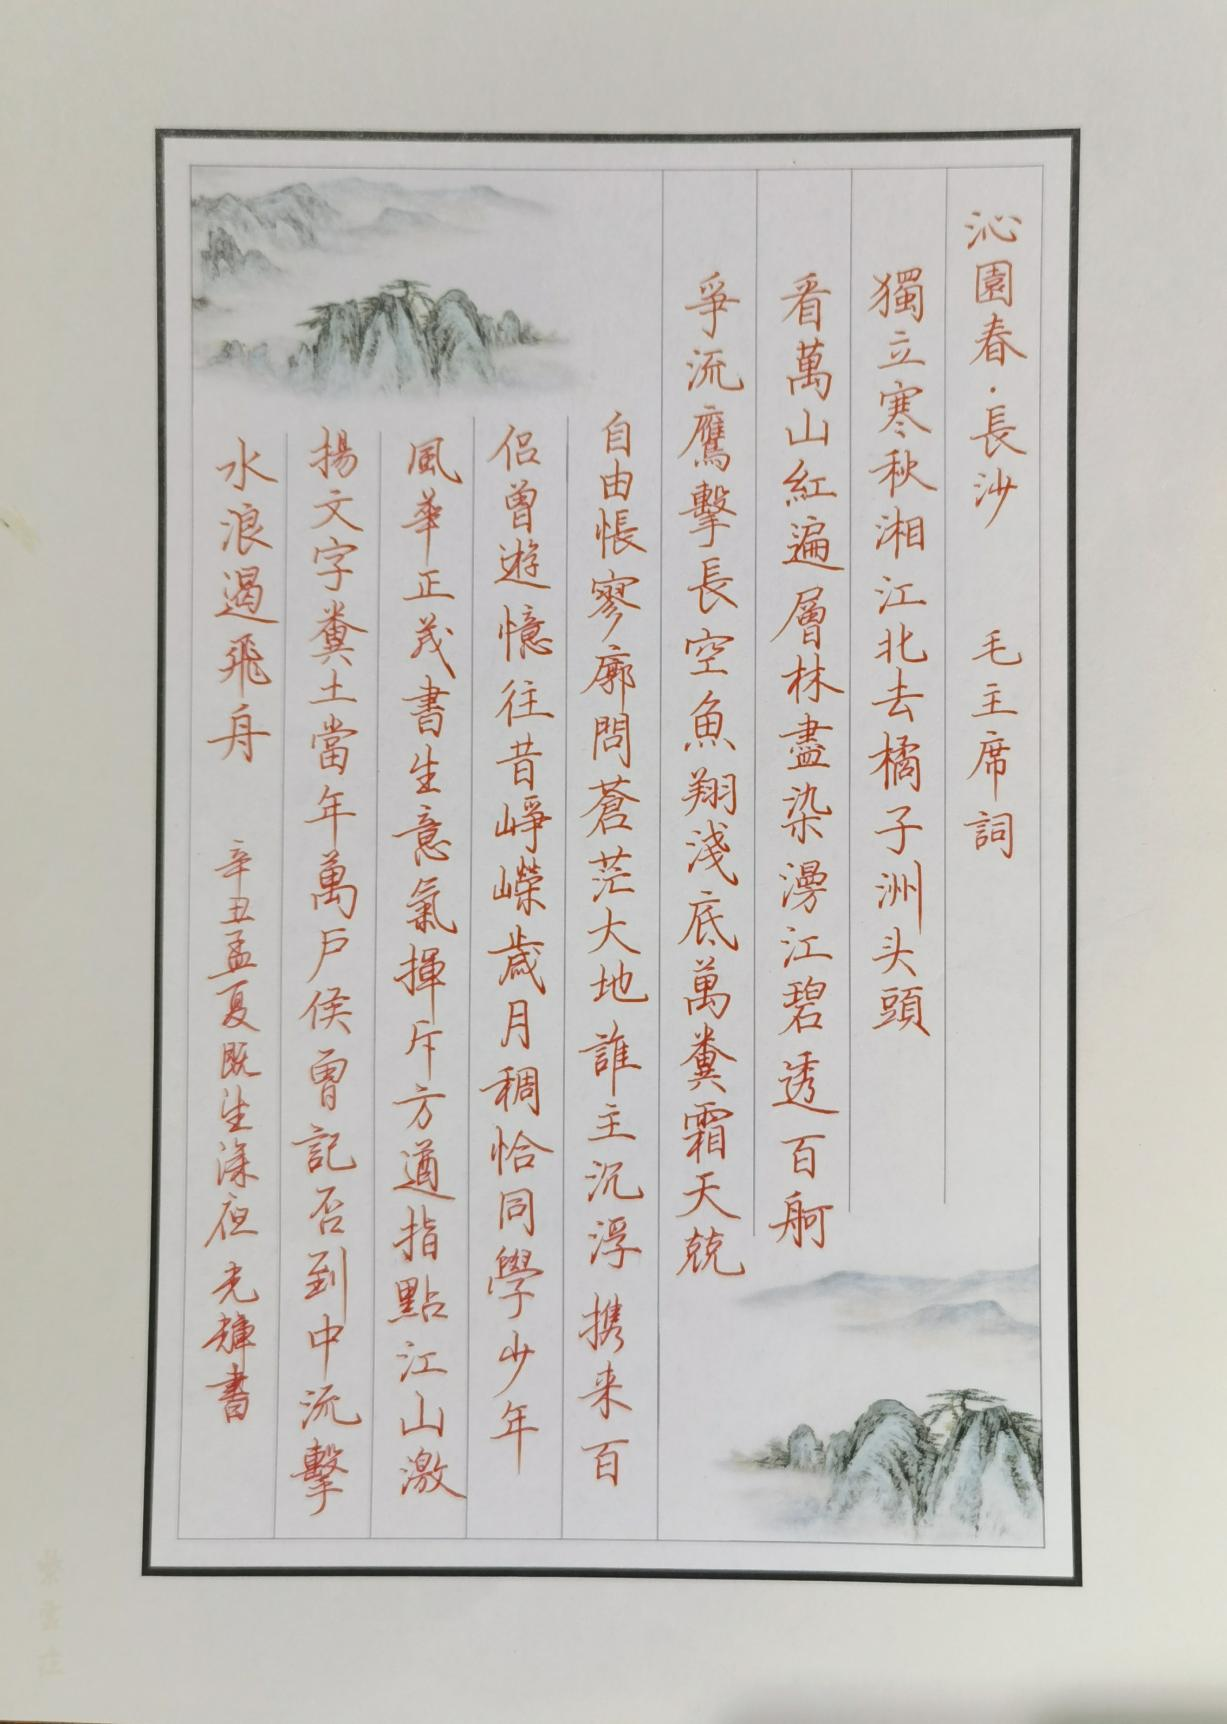 沁園春·長沙 毛主席詞
獨立寒秋湘江北去橘子洲头頭
看萬山紅遍層林盡染漫江碧透百舸
爭流鷹擊長空魚翔淺底萬糞霜天兢
自由悵寥廓問蒼茫大地誰主沉浮携来百
侣曾遊憶往昔崢嶸歲月稠恰同學少年
風華正茂書生意氣揮斥方遒指點江山激
揚文字糞土當年萬戶侯曾記否到中流擊
水浪遏飛舟 辛丑孟夏既生深夜光輝書